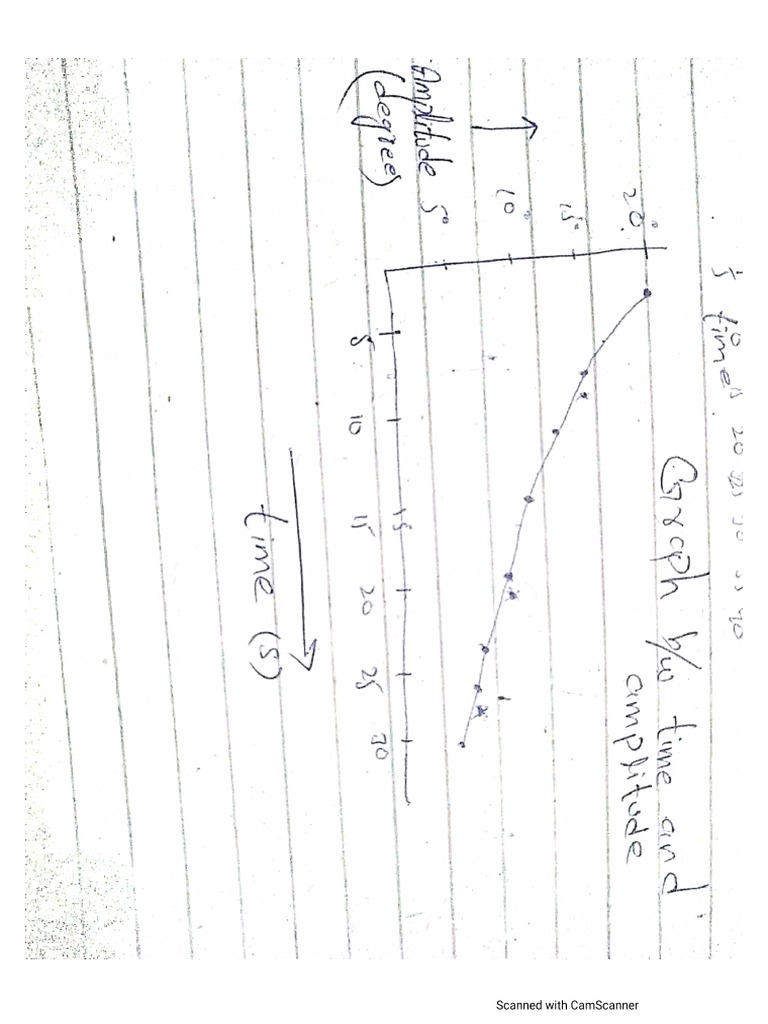 Graph b/w time and
amplitude
20°
15°
10°
5°
Amplitude
(degrees)
5 10 15 20 25 30
time (s)
Scanned with CamScanner